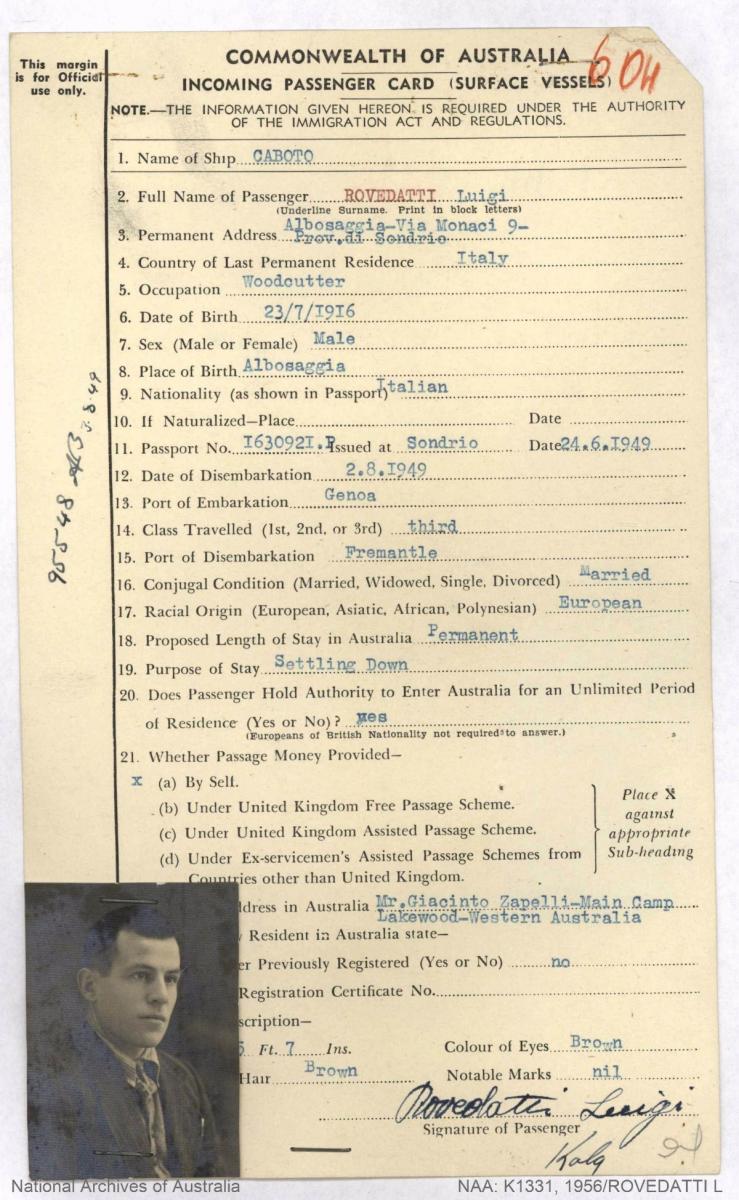 This margin
is for Official
use only.
COMMONWEALTH OF AUSTRALIA
604
INCOMING PASSENGER CARD (SURFACE VESSELS)
NOTE.—THE INFORMATION GIVEN HEREON IS REQUIRED UNDER THE AUTHORITY
OF THE IMMIGRATION ACT AND REGULATIONS.
1. Name of Ship CABOTO
2. Full Name of Passenger ROVEDATTI Luigi
(Underline Surname. Print in block letters)
3. Permanent Address Albosaggia-Via Monaci 9-
Prov.di Sondrio
4. Country of Last Permanent Residence Italy
5. Occupation Woodcutter
6. Date of Birth 23/7/1916
7. Sex (Male or Female) Male
8. Place of Birth Albosaggia
9. Nationality (as shown in Passport) Italian
10. If Naturalized—Place Date
11. Passport No. I630921.P Issued at Sondrio Date 24.6.1949
12. Date of Disembarkation 2.8.1949
13. Port of Embarkation Genoa
14. Class Travelled (1st, 2nd, or 3rd) third
15. Port of Disembarkation Fremantle
16. Conjugal Condition (Married, Widowed, Single, Divorced) Married
17. Racial Origin (European, Asiatic, African, Polynesian) European
18. Proposed Length of Stay in Australia Permanent
19. Purpose of Stay Settling Down
20. Does Passenger Hold Authority to Enter Australia for an Unlimited Period
of Residence (Yes or No)? yes
(Europeans of British Nationality not required to answer.)
21. Whether Passage Money Provided—
x (a) By Self.
(b) Under United Kingdom Free Passage Scheme.
(c) Under United Kingdom Assisted Passage Scheme.
(d) Under Ex-servicemen's Assisted Passage Schemes from
Countries other than United Kingdom.
Place X
against
appropriate
Sub-heading
ddress in Australia Mr.Giacinto Zapelli-Main Camp
Lakewood-Western Australia
y Resident in Australia state—
er Previously Registered (Yes or No) no
Registration Certificate No.
scription—
5 Ft. 7 Ins. Colour of Eyes Brown
Hair Brown Notable Marks nil
Rovedatti Luigi
Signature of Passenger
Kalg
National Archives of Australia NAA: K1331, 1956/ROVEDATTI L